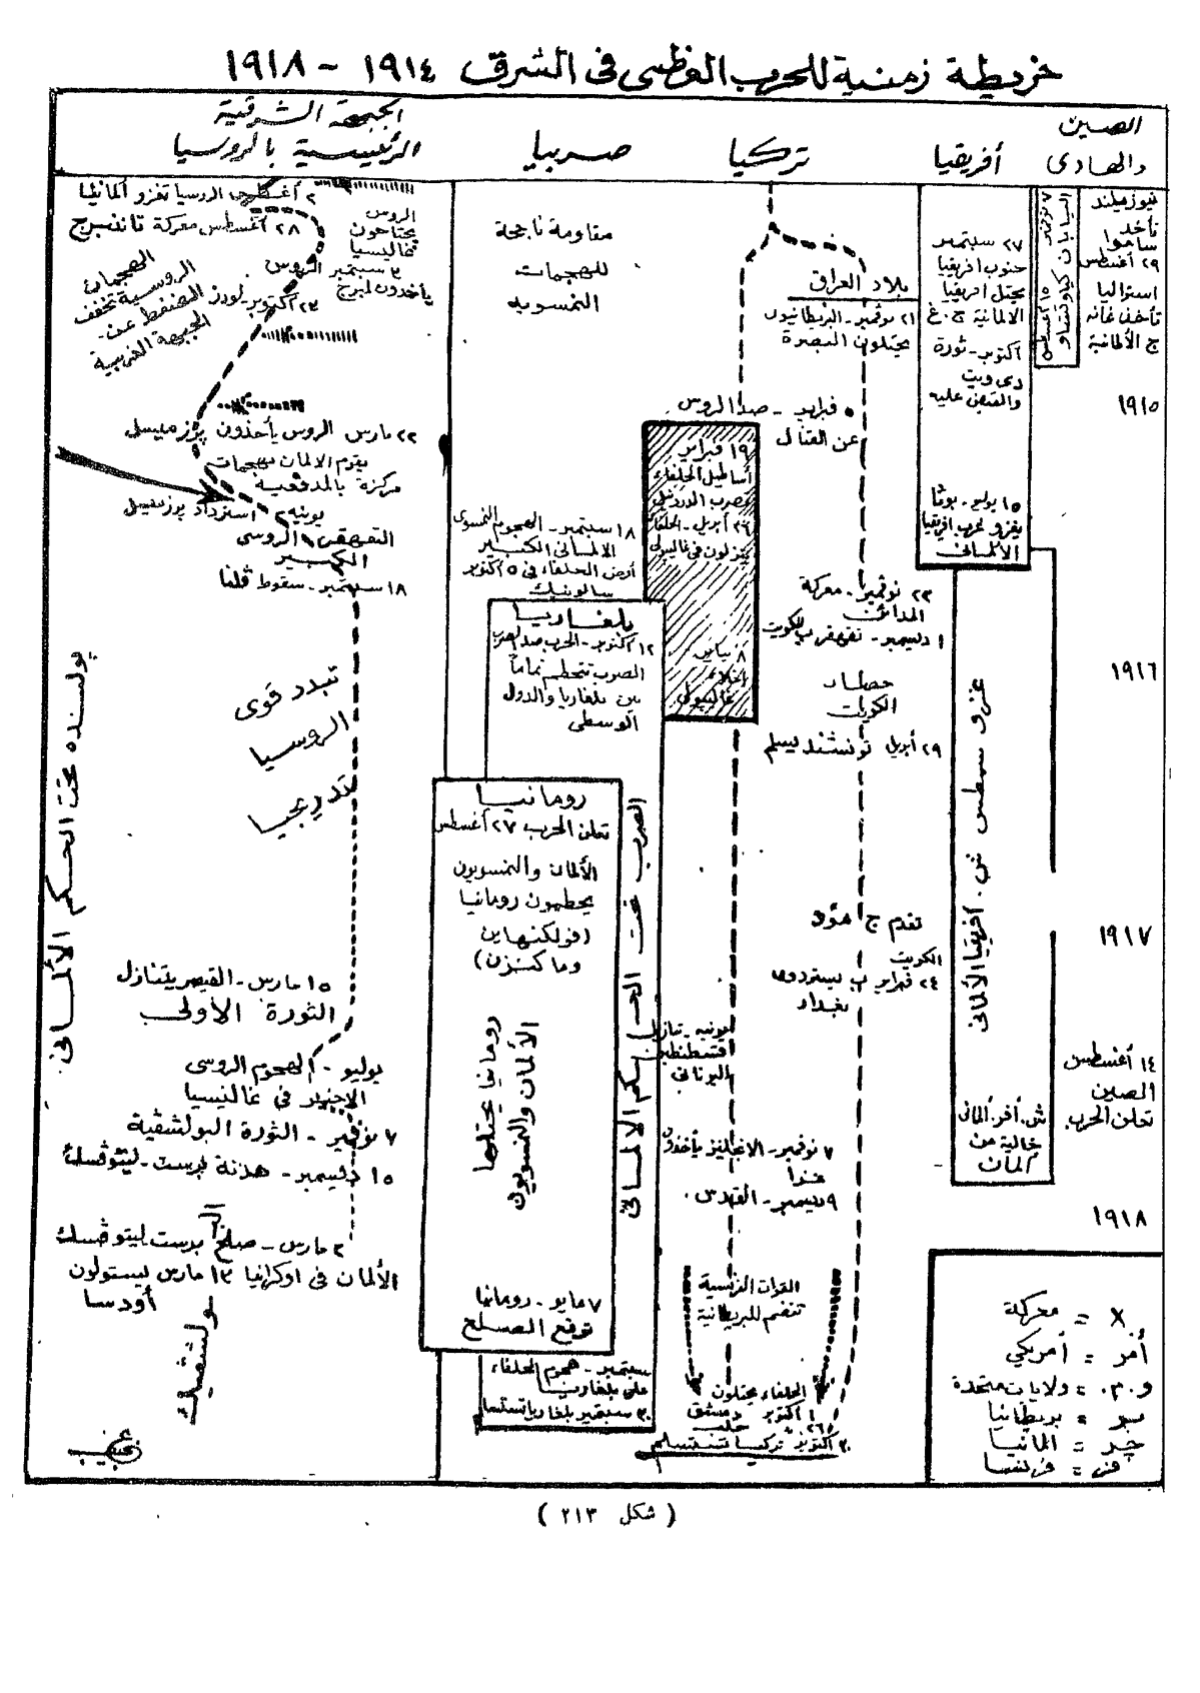 خريطة زمنية للحرب العظمى فى الشرق ١٩١٤ - ١٩١٨
الصين
والهادى
أفريقيا
تركيا
صربيا
الجبهة الشرقية
الرئيسية بالروسيا
نيوزميلند
تأخذ
ساموا
٢٩ أغسطس
استراليا
تأخذ غانه
ج الألمانية
٧ نوفمبر
١٥ أغسطس
١٩١٥
١٩١٦
١٩١٧
١٤ أغسطس
الصين
تعلن الحرب
١٩١٨
٢٧ سبتمبر
جنوب افريقيا
يحتل افريقيا
الالمانية ج. غ
أكتوبر - ثورة
دى ويت
والقبض عليه
١٥ يوليو - بوثا
يغزو غرب افريقيا
الألمانى
غزو سمطس ش. أفريقيا الألمانى
ش. أفر. ألمانى
خالية من
ألمان
بلاد العراق
٢١ نوفمبر - البريطانيون
يحتلون البصرة
فبراير - صد الروس
عن القنال
١٩ فبراير
أساطيل الحلفاء
تضرب الدردنيل
٢٦ أبريل - الحلفاء
ينزلون فى غاليبولى
٨ يناير
إخلاء
غاليبولى
٢٣ نوفمبر - معركة
المدائن
١ ديسمبر - تقهقر ب للكويت
حصار
الكويت
٢٩ أبريل تونشند يسلم
تقدم ج مود
الكويت
٢٤ فبراير ب يستردون
بغداد
يونيه - تنازل
قسطنطين
اليونانى
٧ نوفمبر - الانجليز يأخذون
غزا
٩ ديسمبر - القدس.
القوات الفرنسية
تنضم للبريطانية
الحلفاء يحتلون
١ أكتوبر دمشق
٢٦ حلب
٣٠ أكتوبر تركيا تستسلم
مقاومة ناجحة
للهجمات
النمسويه
١٨ سبتمبر - الهجوم النمسوى
الالمانى الكبير
أرض الحلفاء فى ٥ أكتوبر
سالونيك
بلغاريا
١٢ أكتوبر - الحرب ضد الصرب
الصرب تتحطم تماماً
بين بلغاريا والدول
الوسطى
رومانيا
تعلن الحرب ٢٧ أغسطس
الألمان والنمسويون
يحطمون رومانيا
(فولكنهاين
وماكنزن)
رومانيا يحتلها
الألمان والنمسويون
٧ مايو - رومانيا
توقع الصلح
الصرب تحت الحكم الالمانى
سبتمبر - هجوم الحلفاء
على بلغاريا
٣٠ سبتمبر بلغاريا تستسلم
٢ أغسطس الروسيا تغزو ألمانيا
٢٨ أغسطس معركة تاننبرج
الروس
يجتاحون
غاليسيا
٣ سبتمبر الروس
يأخذون لمبرج
٢٣ أكتوبر - لودز
الهجمات
الروسية تخفف
الضغط عن
الجبهة الغربية
٢٢ مارس الروس يأخذون پرزميسل
يقوم الالمان بهجمات
مركزة بالمدفعية
يونيه ٢ استرداد برزميسل
التقهقر الروسى
الكبير
١٨ سبتمبر - سقوط ڤلنا
تبدد قوى
الروسيا
تدريجيا
بولنده تحت الحكم الألمانى
١٥ مارس - القيصر يتنازل
الثورة الأولى
يوليو - الهجوم الروسى
الاخير فى غاليسيا
٧ نوفمبر - الثورة البولشفية
١٥ ديسمبر - هدنة برست - ليتوڤسك
٢ مارس - صلح برست ليتوڤسك
الألمان فى اوكرانيا ١٣ مارس يستولون
أودسا
بولشفيك
x = معركة
أمر = أمريكي
و.م. = ولايات متحدة
بر = بريطانيا
جر = المانيا
فر = فرنسا
( شكل ٢١٣ )